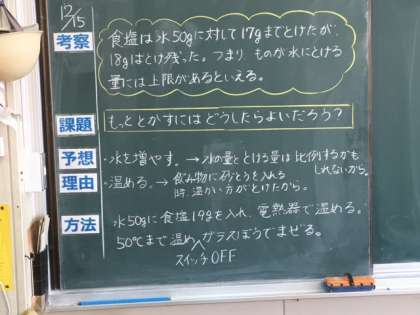 12/15
考察
食塩は水50gに対して17gまでとけたが、
18gはとけ残った。つまり、ものが水にとける
量には上限があるといえる。
課題
もっととかすにはどうしたらよいだろう?
予想
・水を増やす。→ 水の量ととける量は比例するかも
しれないから。
理由
・温める。→ 飲み物に砂とうを入れる
時、温かい方がとけたから。
方法
水50gに食塩19gを入れ、電熱器で温める。
50℃まで温め ガラスぼうでまぜる。
スイッチOFF